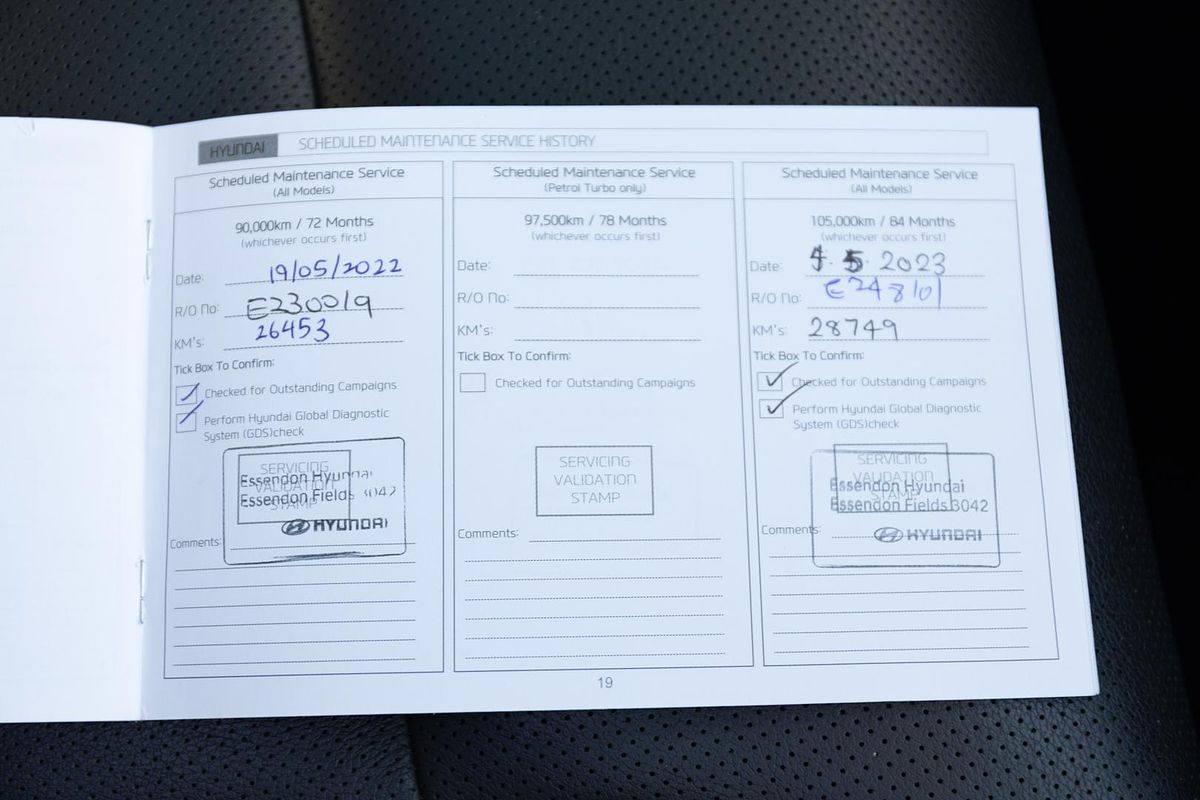 HYUNDAI SCHEDULED MAINTENANCE SERVICE HISTORY
Scheduled Maintenance Service
(All Models)
90,000km / 72 Months
(whichever occurs first)
Date: 19/05/2022
R/O No: E230019
KM's: 26453
Tick Box To Confirm:
Checked for Outstanding Campaigns
Perform Hyundai Global Diagnostic
System (GDS)check
SERVICING
VALIDATION
STAMP
Essendon Hyundai
Essendon Fields 3042
HYUNDAI
Comments:
Scheduled Maintenance Service
(Petrol Turbo only)
97,500km / 78 Months
(whichever occurs first)
Date:
R/O No:
KM's:
Tick Box To Confirm:
Checked for Outstanding Campaigns
SERVICING
VALIDATION
STAMP
Comments:
Scheduled Maintenance Service
(All Models)
105,000km / 84 Months
(whichever occurs first)
Date: 5 2023
R/O No: E248101
KM's: 28749
Tick Box To Confirm:
Checked for Outstanding Campaigns
Perform Hyundai Global Diagnostic
System (GDS)check
SERVICING
VALIDATION
STAMP
Essendon Hyundai
Essendon Fields 3042
HYUNDAI
Comments:
19